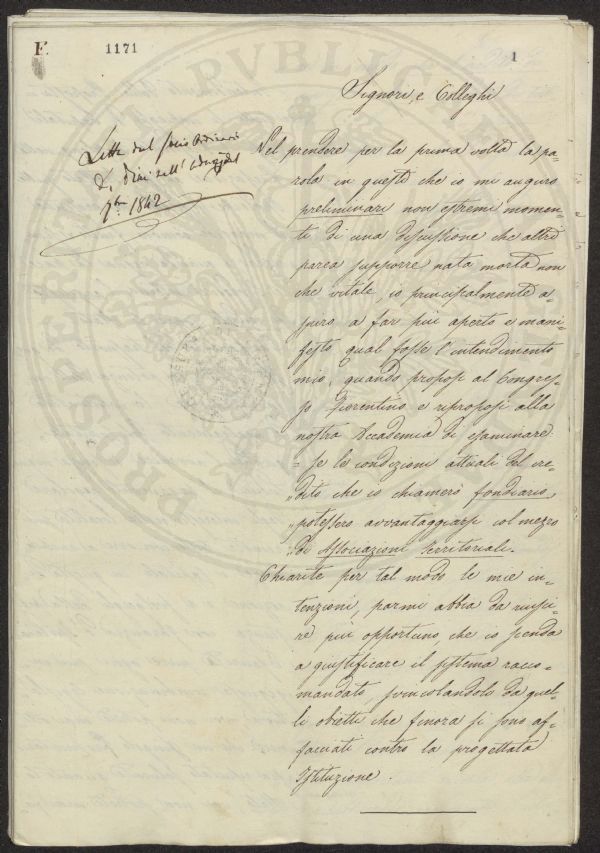 E.
1171
1
Signori, e Colleghi
Letta dal Socio Ordinario
7bre 1842
Nel prendere per la prima volta la pa-
rola in questi che io mi auguro
preliminari non estremi momen-
ti di una discussione che altri
parea supporre nata morta non
che vitale, io principalmente a-
spiro a far più aperto e mani-
festo qual fosse l'intendimento
mio, quando proposi al Congres-
so Fiorentino e riproposi alla
nostra Accademia di esaminare
= se le condizioni attuali del cre-
"dito che io chiamerò fondiario,
"potessero avvantaggiarsi col mezzo
"di Associazioni territoriali.
Chiarite per tal modo le mie in-
tenzioni, parmi abbia da riusci-
re più opportuno, che io scenda
a giustificare il sistema racco-
mandato, svincolandolo da quel-
li obietti che finora si sono af-
facciati contro la progettata
Istituzione.